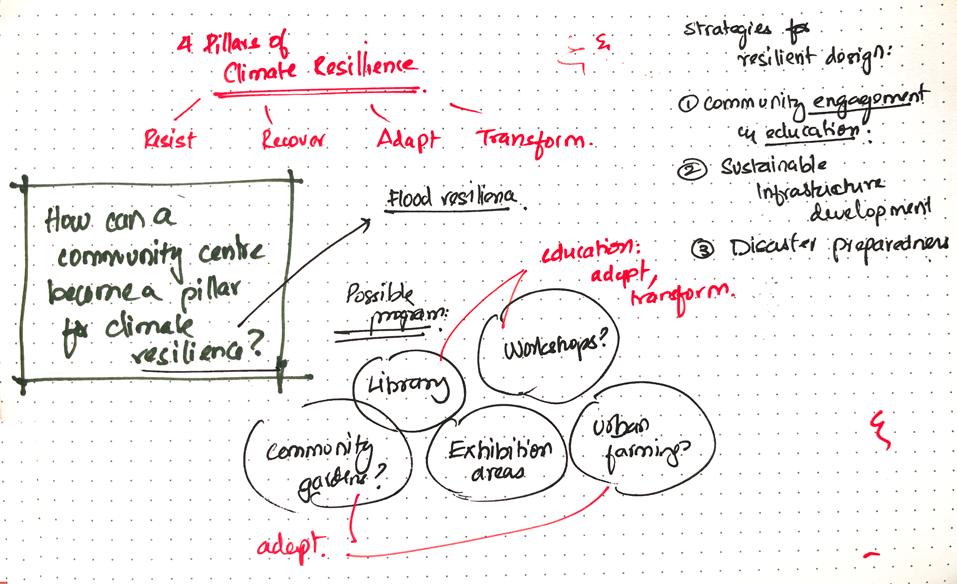 4 Pillars of
Climate Resillience
Resist Recover Adapt Transform.
strategies for
resilient design:
① community engagement
& education.
② Sustainable
infrastricture
development
③ Disaster preparedness
How can a
community centre
become a pillar
for climate
resilience?
Flood resilience
Possible
program:
education:
adapt,
transform.
Library
Workshops?
Community
gardens?
Exhibition
areas
Urban
farming?
adapt.